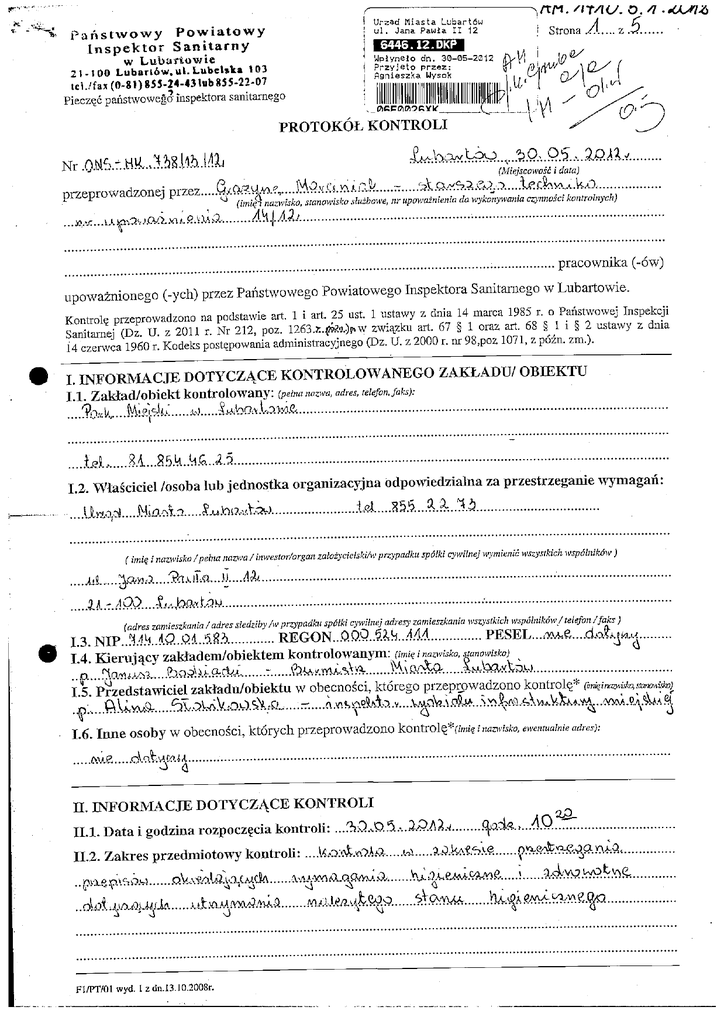 Państwowy Powiatowy
Inspektor Sanitarny
w Lubartowie
21-100 Lubartów, ul. Lubelska 103
tel./fax (0-81) 855-24-43 lub 855-22-07
Pieczęć państwowego inspektora sanitarnego
Urząd Miasta Lubartów
ul. Jana Pawła II 12
6446.12.DKP
Wpłynęło dn. 30-05-2012
Przyjęto przez:
Agnieszka Wysok
Strona 1 z 5
PROTOKÓŁ KONTROLI
Nr ONS-HK 738/13/12 Lubartów, 30.05.2012r.
(Miejscowość i data)
przeprowadzonej przez Grażynę Marciniak - starszego technika
(imię i nazwisko, stanowisko służbowe, nr upoważnienia do wykonywania czynności kontrolnych)
nr upoważnienia 14/12
pracownika (-ów)
upoważnionego (-ych) przez Państwowego Powiatowego Inspektora Sanitarnego w Lubartowie.
Kontrolę przeprowadzono na podstawie art. 1 i art. 25 ust. 1 ustawy z dnia 14 marca 1985 r. o Państwowej Inspekcji
Sanitarnej (Dz. U. z 2011 r. Nr 212, poz. 1263 z późn.) w związku art. 67 § 1 oraz art. 68 § 1 i § 2 ustawy z dnia
14 czerwca 1960 r. Kodeks postępowania administracyjnego (Dz. U. z 2000 r. nr 98,poz 1071, z późn. zm.).
I. INFORMACJE DOTYCZĄCE KONTROLOWANEGO ZAKŁADU/ OBIEKTU
I.1. Zakład/obiekt kontrolowany: (pełna nazwa, adres, telefon, faks):
Park Miejski w Lubartowie
tel. 81 854 46 25
I.2. Właściciel /osoba lub jednostka organizacyjna odpowiedzialna za przestrzeganie wymagań:
Urząd Miasta Lubartów tel 855 22 73
( imię i nazwisko / pełna nazwa / inwestor/organ założycielski/w przypadku spółki cywilnej wymienić wszystkich wspólników )
ul Jana Pawła II 12
21-100 Lubartów
(adres zamieszkania / adres siedziby /w przypadku spółki cywilnej adresy zamieszkania wszystkich wspólników / telefon / faks )
I.3. NIP 714 10 01 583 REGON 000 524 111 PESEL nie dotyczy
I.4. Kierujący zakładem/obiektem kontrolowanym: (imię i nazwisko, stanowisko)
p Janusz Bodziacki - Burmistrz Miasta Lubartów
I.5. Przedstawiciel zakładu/obiektu w obecności, którego przeprowadzono kontrolę* (imię i nazwisko, stanowisko)
p. Alina - inspektor wydziału infrastruktury miejskiej
I.6. Inne osoby w obecności, których przeprowadzono kontrolę*(imię i nazwisko, ewentualnie adres):
nie dotyczy
II. INFORMACJE DOTYCZĄCE KONTROLI
II.1. Data i godzina rozpoczęcia kontroli: 30.05.2012r. godz. 10 20
II.2. Zakres przedmiotowy kontroli: kontrola w zakresie przestrzegania
przepisów określających wymagania higieniczne i zdrowotne
dotyczących utrzymania należytego stanu higienicznego
F1/PT/01 wyd. 1 z dn.13.10.2008r.